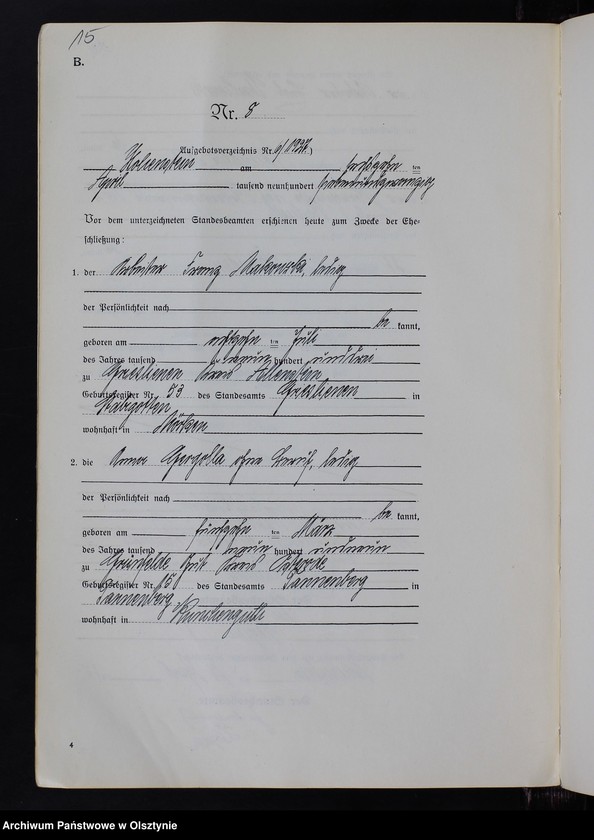 15
B.
Nr. 8
Aufgebotsverzeichnis Nr. 9/1927.)
Hohenstein am sechszehn ten
April tausend neunhundert siebenundzwanzig
Vor dem unterzeichneten Standesbeamten erschienen heute zum Zwecke der Ehe-
schließung:
1. der Arbeiter Franz Makowski, ledig
der Persönlichkeit nach
be kannt,
geboren am achtzehn ten Juli
des Jahres tausend neun hundert unddrei
zu Grieslienen Kreis Allenstein
Geburtsregister Nr. 53 des Standesamts Grieslienen in
wohnhaft in Mörken
2. die Anna ohne Beruf, ledig
der Persönlichkeit nach
be kannt,
geboren am fünfzehn ten März
des Jahres tausend neun hundert undneun
zu Grünfelde Kreis Osterode
Geburtsregister Nr. 15 des Standesamts Tannenberg in
Tannenberg
wohnhaft in Kunchengut
4
Archiwum Państwowe w Olsztynie